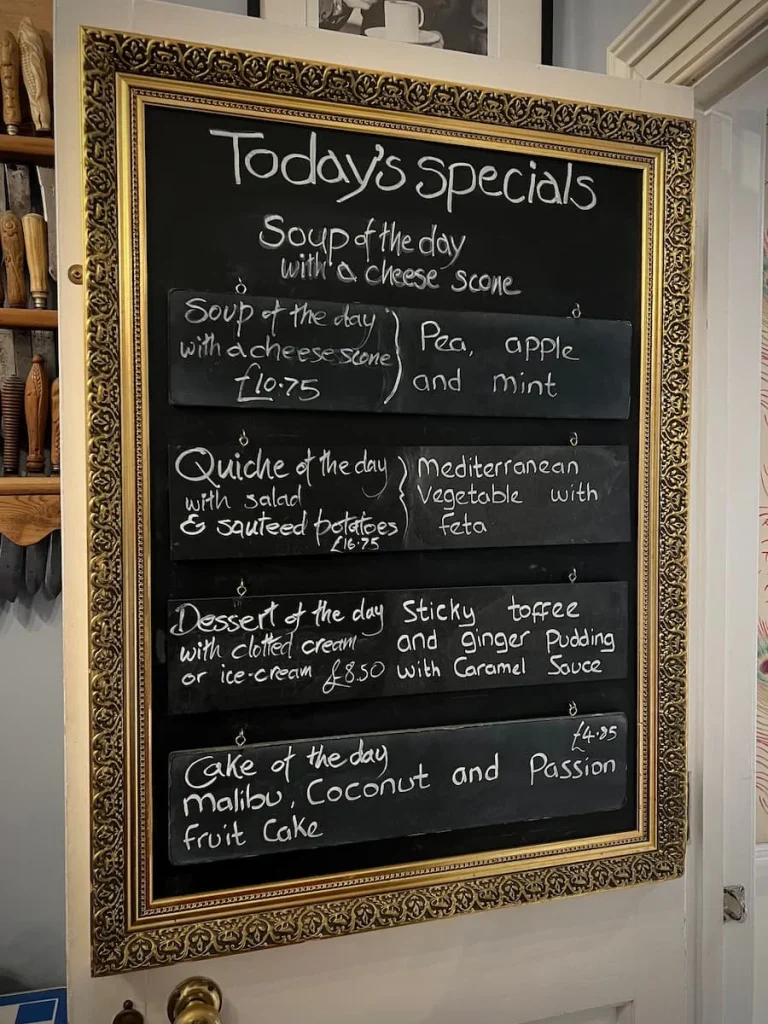 Today's specials
Soup of the day
with a cheese scone
Soup of the day
with a cheese scone
£10.75
Pea, apple
and mint
Quiche of the day
with salad
& sauteed potatoes
£16.75
Mediterranean
Vegetable with
feta
Dessert of the day
with clotted cream
or ice-cream £8.50
Sticky toffee
and ginger Pudding
with Caramel Sauce
£4.95
Cake of the day
Malibu, Coconut and Passion
fruit Cake